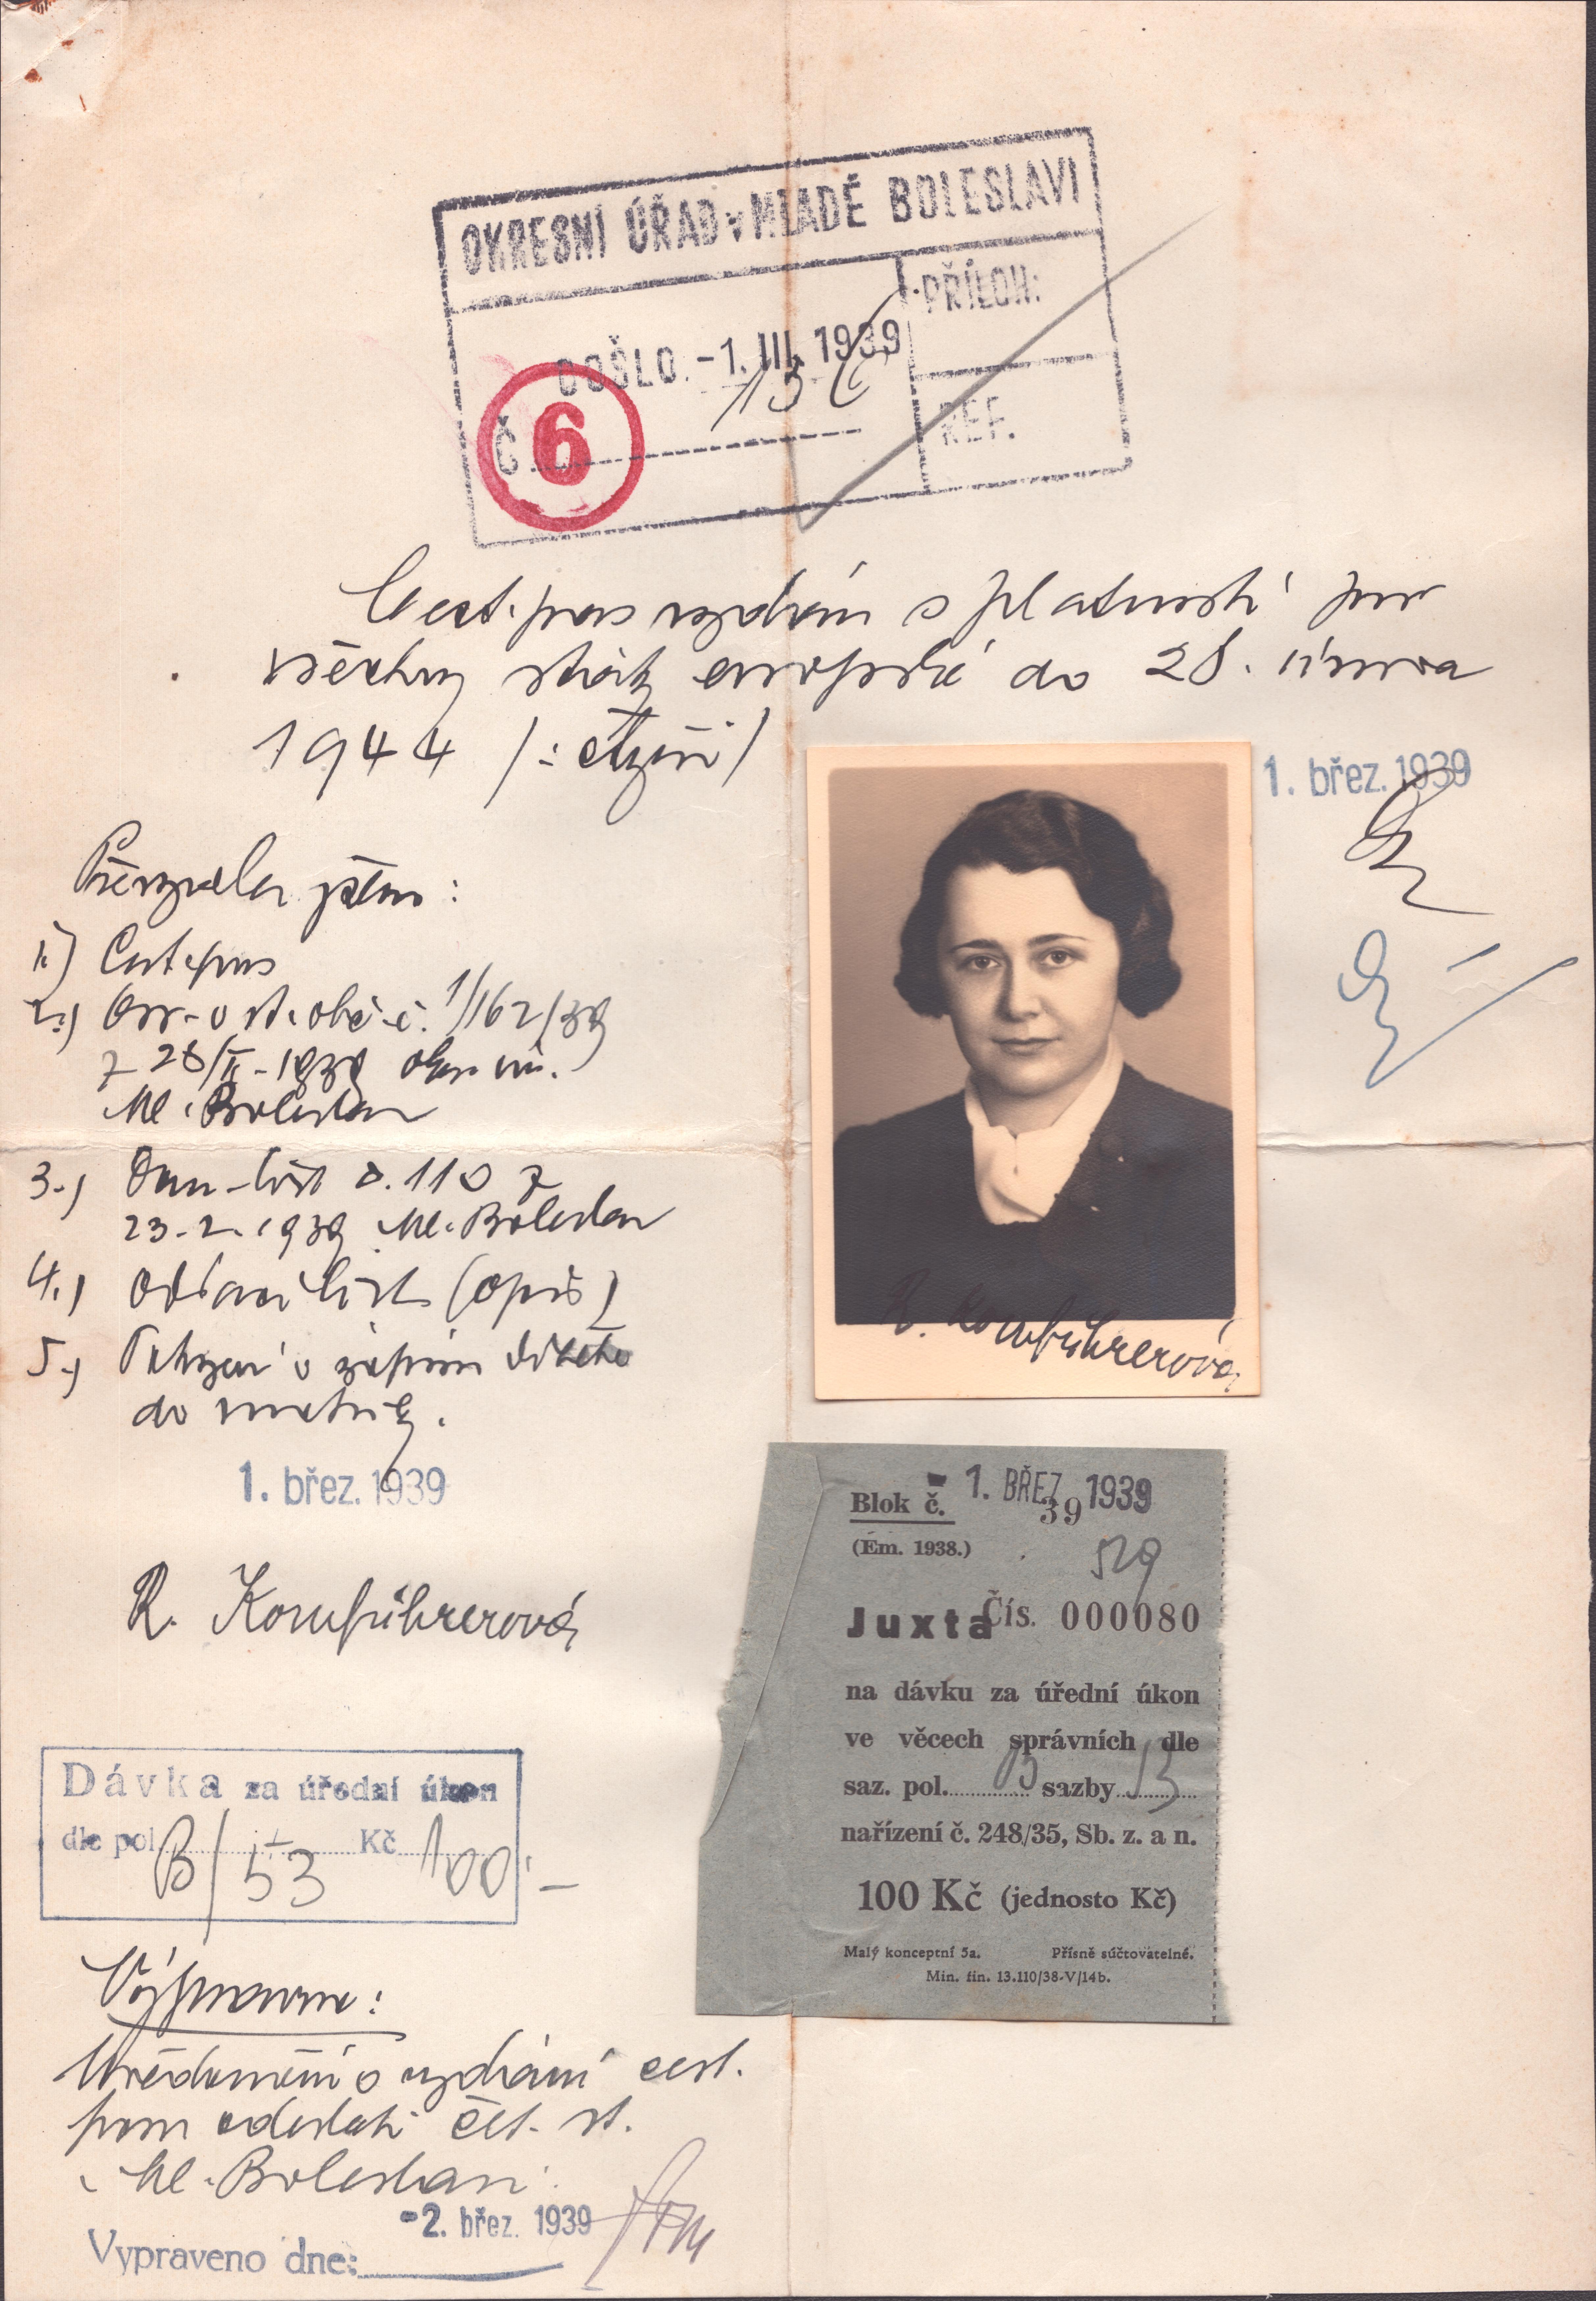 OKRESNÍ ÚŘAD v MLADÉ BOLESLAVI
DOŠLO. -1. III. 1939
PŘÍLOH:
Č. 6
REF.
Cest. pas vydán s platností pro
všechny státy evropské do 28. února
1944 /: čtyři/
1. břez. 1939
Převzala jsem:
1.) Cest. pas
2.) Osv. o st. obč. č. 1/162/39
z 28/II - 1939 okr. úř.
Ml. Boleslav
3.) Dom. list č. 110 z
23. 2. 1939 Ml. Boleslav
4.) Oddací list (opis)
5.) Potvrzení o zápisu dítěte
do matriky.
1. břez. 1939
R. Kornführerová
R. Kornführerová
Blok č. 39
- 1. BŘEZ. 1939
(Em. 1938.)
529
Juxta Čís. 000080
na dávku za úřední úkon
ve věcech správních dle
saz. pol. sazby B
nařízení č. 248/35, Sb. z. a n.
100 Kč (jednosto Kč)
Malý konceptní 5a. Přísně súčtovatelné.
Min. fin. 13.110/38-V/14b.
Dávka za úřední úkon
dle pol. B/53 Kč 100.-
Výpravna:
Uvědomění o vydání cest.
pasu odeslati čet. st.
Ml. Boleslav
-2. břez. 1939
Vypraveno dne: